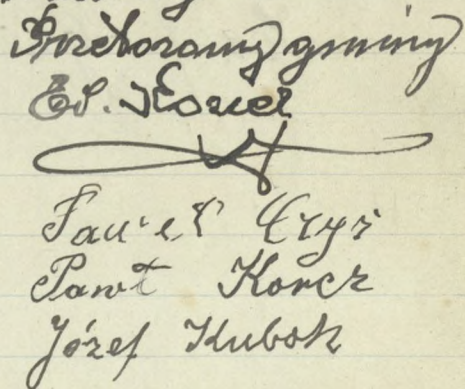 Przełożony gminy
Ed. Kozieł
Paweł Czyż
Pawł Korcz
Józef Kubok